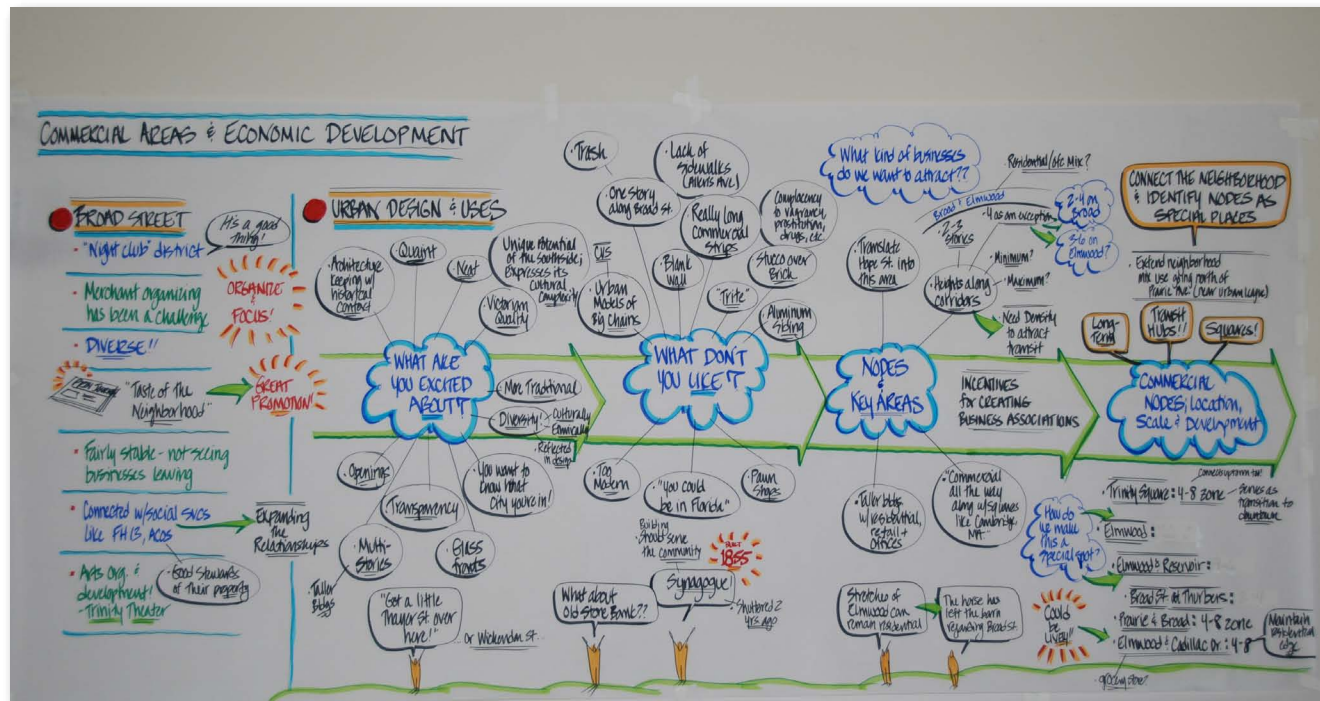 COMMERCIAL AREAS & ECONOMIC DEVELOPMENT
BROAD STREET
It's a good
thing!
• "Night club" district
• Merchant organizing
has been a challenge
ORGANIZE
&
FOCUS!
• DIVERSE!!
"Taste of the
Neighborhood"
GREAT
PROMOTION!
• Fairly stable - not seeing
businesses leaving
• Connected w/social svcs
like
Expanding
the
Relationships
• Good Stewards
of their property
• Arts org. &
development!
- Trinity Theater
URBAN DESIGN & USES
• Architecture
keeping w/
historical
context
Quaint
• Neat
Unique potential
of the southside;
expresses its
cultural
complexity
Victorian
Quality
WHAT ARE
YOU EXCITED
ABOUT?
• More Traditional
Diversity!
- Culturally
- Ethnically
• Reflected
in design
• Openings
Transparency
You want to
know what
City you're in!
• Multi-
Stories
• Taller
Bldgs
Glass
fronts
"Got a little
Thayer St over
here!"
or Wickenden St...
• Trash
• Lack of
Sidewalks
(Allens Ave)
• One Story
along Broad St.
Really long
commercial
strips
Complacency
to vagrancy,
prostitution,
drugs, etc
CVS
• Urban
Models of
Big Chains
• Blank
Wall
• Stucco over
Brick
"Trite"
• Aluminum
Siding
WHAT DON'T
YOU LIKE?
• Too
Modern
• "You could
be in Florida"
• Pawn
Shops
Building
Should serve
the community
BUILT
1855
What about
Old Stone Bank??
Synagogue!
• Shuttered 2
yrs ago
What kind of businesses
do we want to attract??
• Residential/ofc Mix?
Broad & Elmwood
2-3
stories
- 4 as an exception
2-4 on
Broad
3-6 on
Elmwood?
• Translate
Hope St. into
this area
• Heights along
corridors
• Minimum?
• Maximum?
• Need Density
to attract
transit
NODES
&
KEY AREAS
INCENTIVES
FOR CREATING
BUSINESS ASSOCIATIONS
• Taller bldgs
w/residential,
retail +
offices
• "Commercial
all the way
along w/squares
like Cambridge
MA"
Stretches of
Elmwood can
remain residential
The horse has
left the barn
regarding Broad St.
CONNECT THE NEIGHBORHOOD
& IDENTIFY NODES AS
SPECIAL PLACES
• Extend neighborhood
mix use going north of
Prairie Ave.
Long-
Term
TRANSIT
HUBS!!
SQUARES!
COMMERCIAL
NODES; Location,
Scale & Development
• Trinity Square: 4-8 zone
- Serves as
transition to
downtown
How do
we make
this a
special spot?
• Elmwood:
• Elmwood & Reservoir:
• Broad St at Thurbers:
Could
be
Lively!!
• Prairie & Broad: 4-8 zone
• Elmwood & Cadillac Dr: 4-8
Maintain
residential
edge
• grocery store?